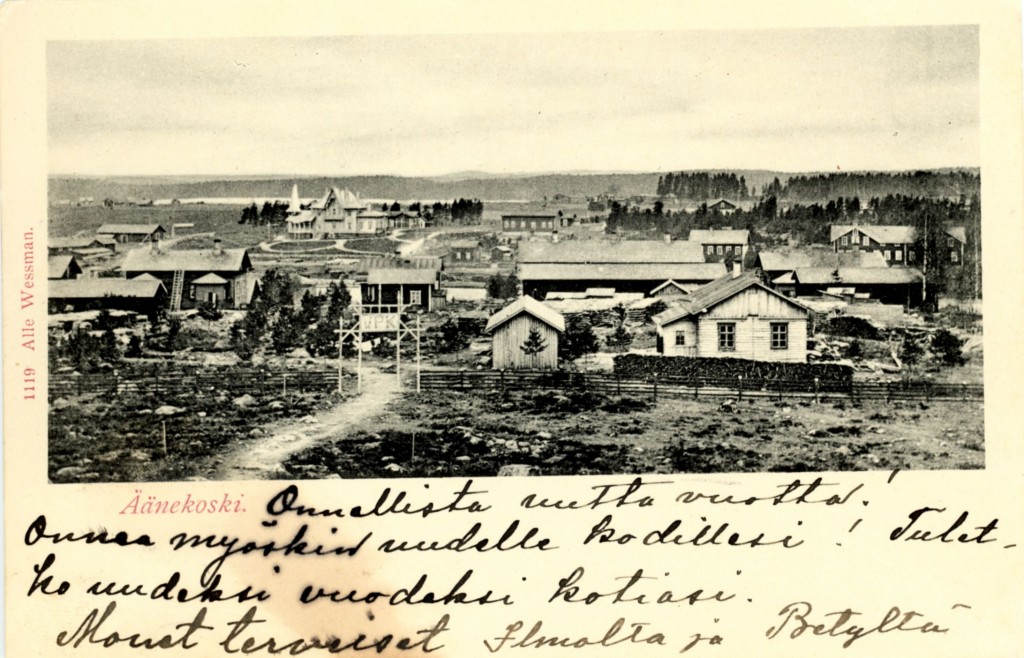 1119 Alle Wessman.
Äänekoski. Onnellista uutta vuotta!
Onnea myöskin uudelle kodillesi! Tulet-
ko uudeksi vuodeksi kotiasi.
Monet terveiset Ilmolta ja Betyltä